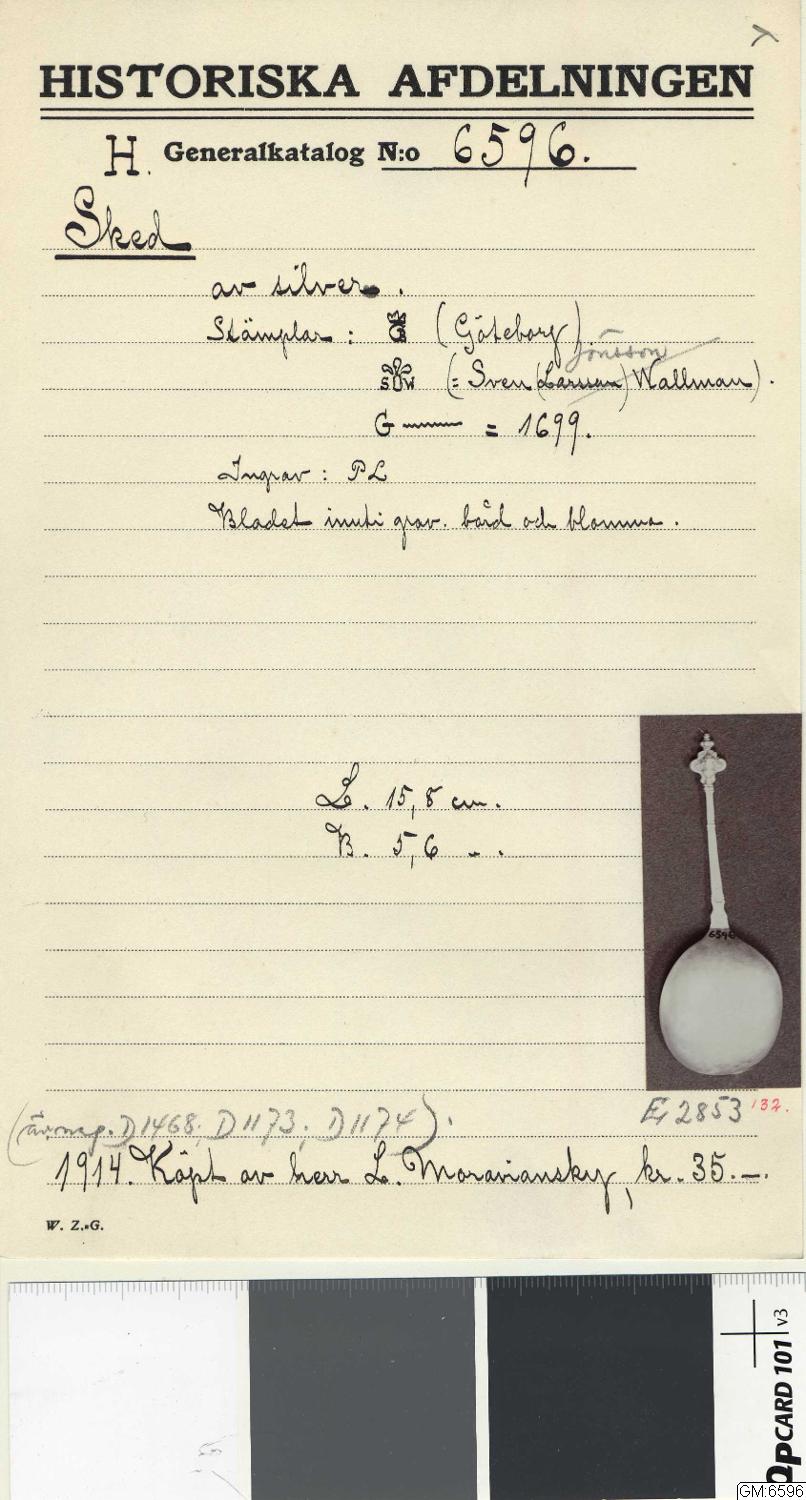 HISTORISKA AFDELNINGEN
H. Generalkatalog N:o 6596.
Sked
av silver.
Stämplar: G (Göteborg).
Jönsson
SW (= Sven (Larsson) Wallman).
G = 1699.
Ingrav: PL
Bladet inuti grav. bård och blomma.
L. 15,8 cm.
B. 5,6 - .
6596
(även neg. D1468; D1173; D1174).
E 2853 132.
1914. Köpt av herr L. Moraviansky, kr. 35.-.
W. Z.-G.
QPCARD 101 v3
GM:6596